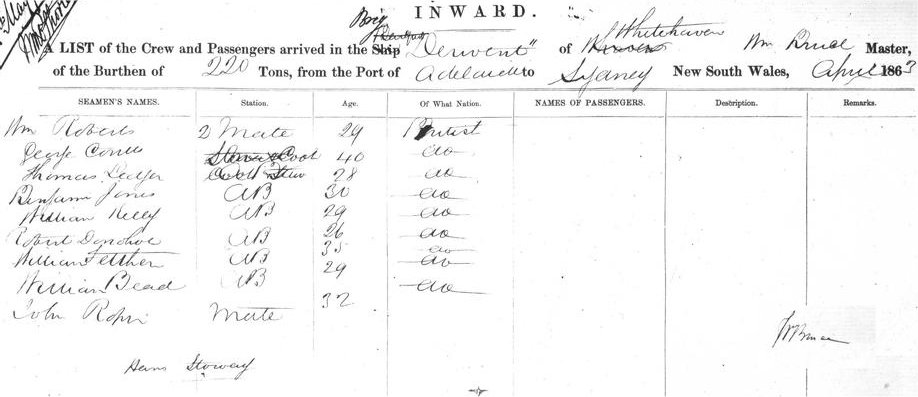 INWARD.
Brig
A LIST of the Crew and Passengers arrived in the Ship "Derwent" of Whitehaven Wm Bruce Master,
of the Burthen of 220 Tons, from the Port of Adelaide to Sydney New South Wales, April 1863
SEAMEN'S NAMES. Station. Age. Of What Nation. NAMES OF PASSENGERS. Description. Remarks.
Wm Roberts 2 Mate 29 British
George Cook 40 do
Thomas 28 do
Benjamin Jones AB 30 do
William Kelly AB 29 do
Robert Donohoe AB 26 do
William AB 35 do
William Bead AB 29 do
John Mate 32 do
Stoway
WBruce